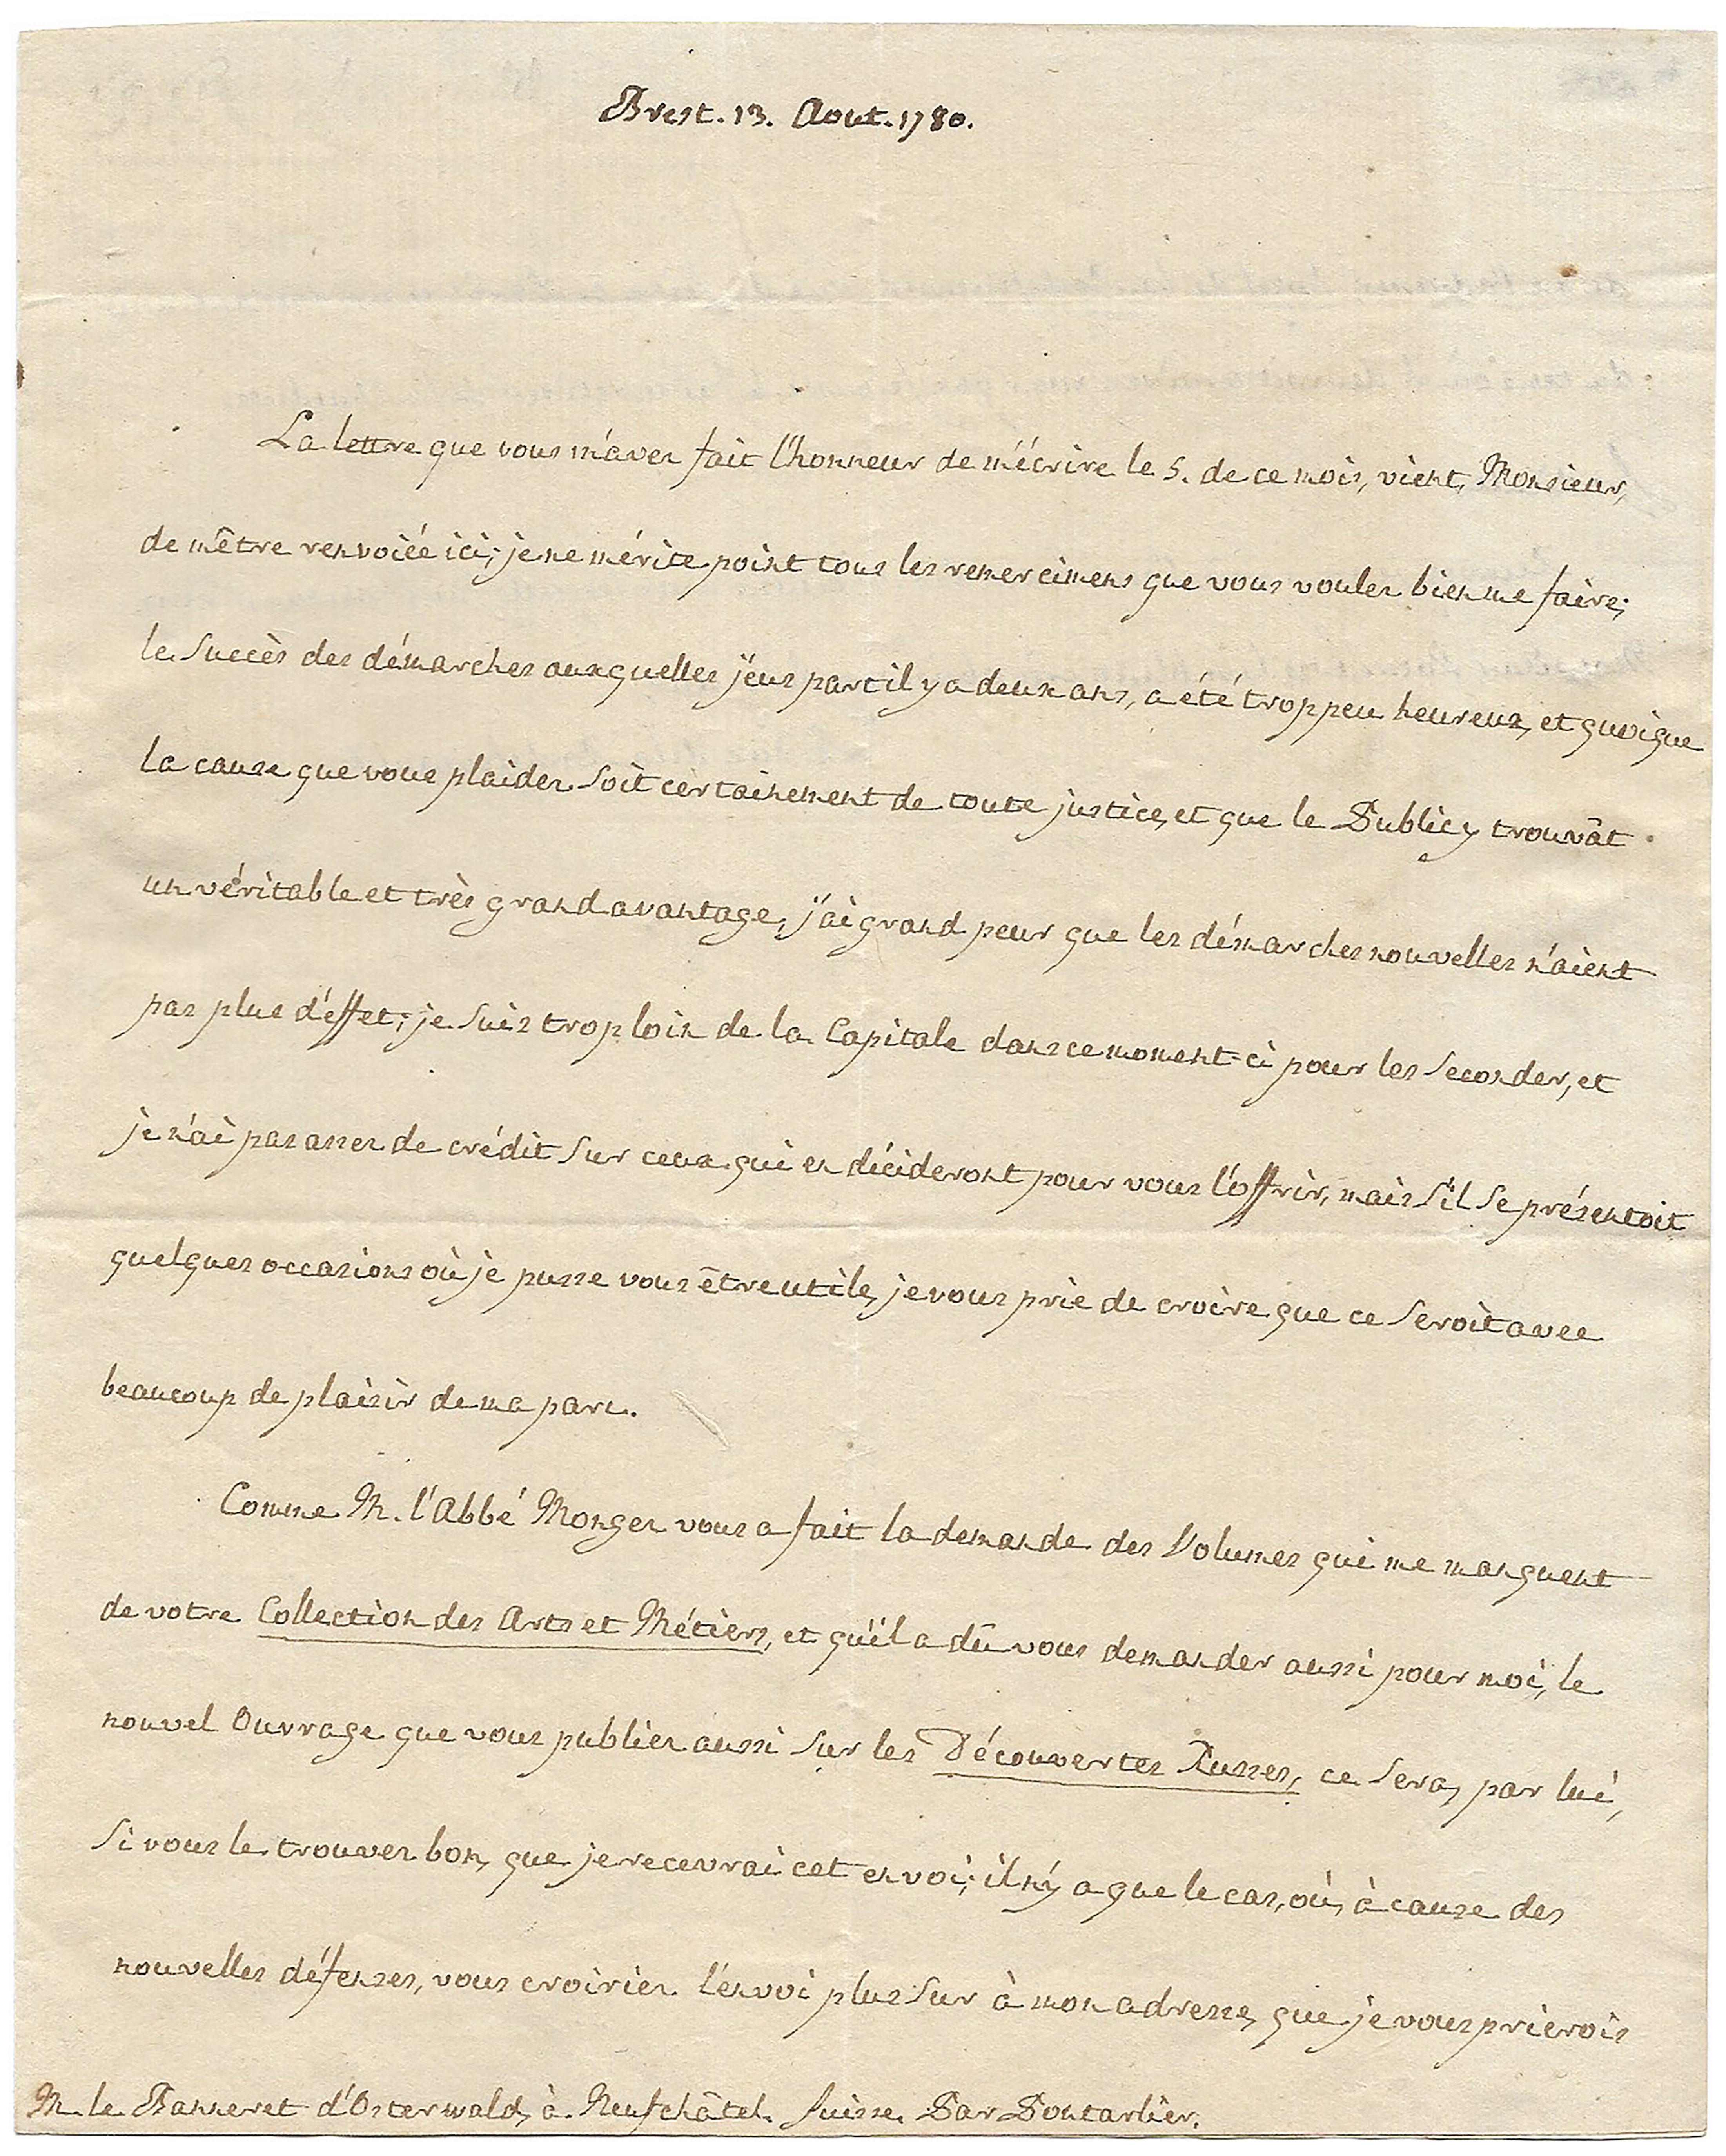 Brest. 13. Aout. 1780.
La lettre que vous m'avez fait l'honneur de m'écrire le 5. de ce mois, vient, Monsieur,
de m'être renvoiée ici; je ne mérite point tous les remercimens que vous voulez bien me faire;
le Succès des démarches auxquelles j'eus part il y a deux ans, a été trop peu heureux, et quoique
la cause que vous plaidez Soit certainement de toute justice, et que le Public y trouvât
un véritable et très grand avantage, j'ai grand peur que les démarches nouvelles n'aient
pas plus d'éffet; je Suis trop loin de la Capitale dans ce moment-ci pour les Seconder, et
je n'ai pas assez de crédit Sur ceux qui en décideront pour vous l'offrir, mais S'il Se présentoit
quelques occasions où je pusse vous être utile, je vous prie de croire que ce Seroit avec
beaucoup de plaisir de ma part.
Comme M. l'Abbé Mongez vous a fait la demande des Volumes qui me manquent
de votre Collection des Arts et Métiers, et qu'il a dû vous demander aussi pour moi, le
nouvel Ouvrage que vous publiez aussi Sur les Découvertes Russes, ce Sera, par lui,
Si vous le trouvez bon, que je recevrai cet envoi; il n'y a que le cas, où, à cause des
nouvelles défenses, vous croiriez l'envoi plus Sur à mon adresse, que je vous prierois
M. le Banneret d'Osterwald, à Neufchâtel. Suisse. Par Pontarlier.